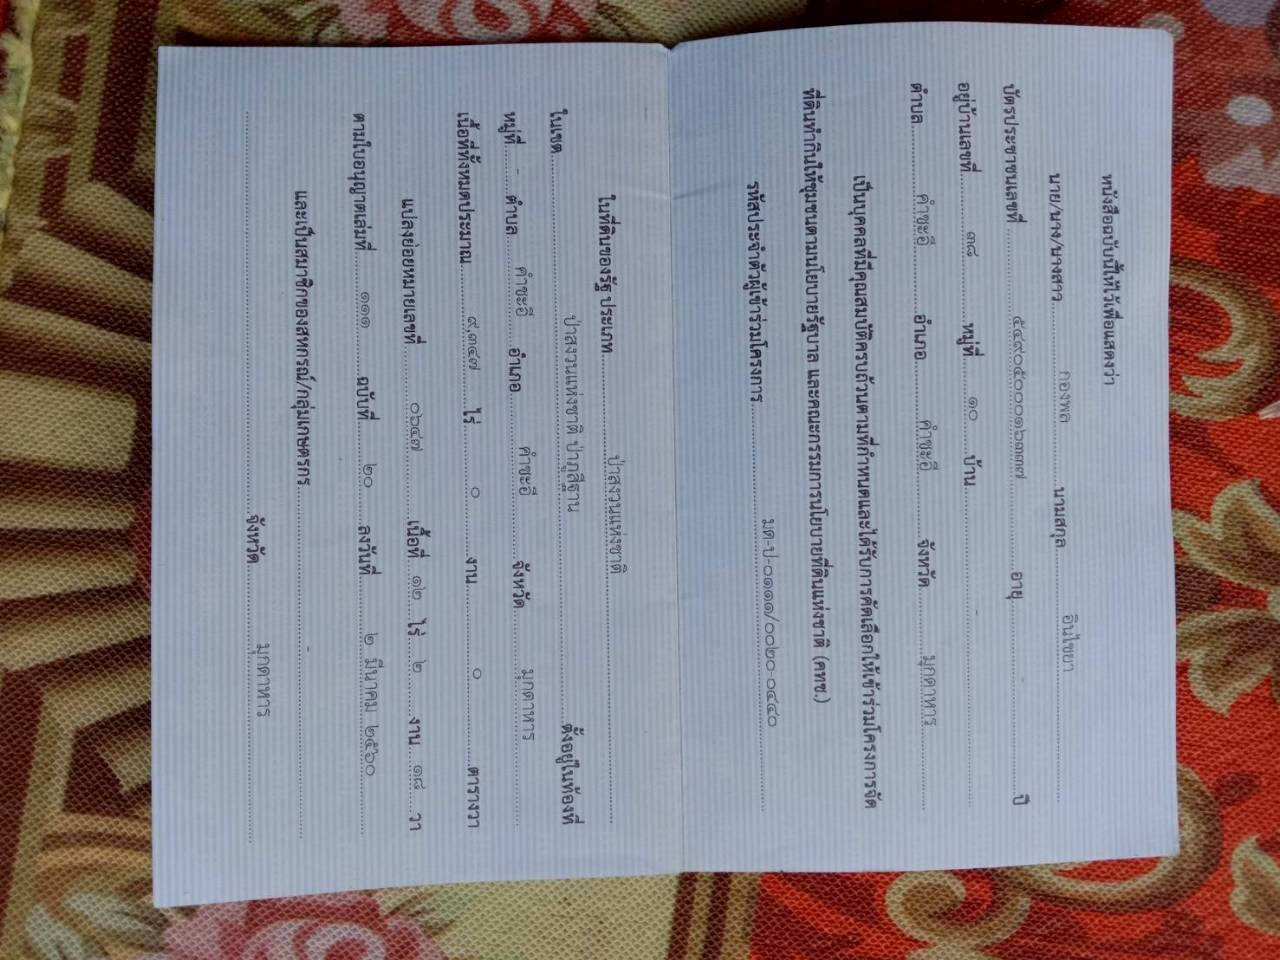 หนังสือฉบับนี้ให้ไว้เพื่อแสดงว่า
นาย/นาง/นางสาว กองพล นามสกุล อินไชยา
บัตรประชาชนเลขที่ ๕๔๙๐๕๐๐๐๑๖๓๓๗ อายุ - ปี
อยู่บ้านเลขที่ ๓๘ หมู่ที่ ๑๐ บ้าน
ตำบล คำชะอี อำเภอ คำชะอี จังหวัด มุกดาหาร
เป็นบุคคลที่มีคุณสมบัติครบถ้วนตามที่กำหนดและได้รับการคัดเลือกให้เข้าร่วมโครงการจัด
ที่ดินทำกินให้ชุมชนตามนโยบายรัฐบาล และคณะกรรมการนโยบายที่ดินแห่งชาติ (คทช.)
รหัสประจำตัวผู้เข้าร่วมโครงการ มด-ป-๐๑๑๑/๐๐๒๐-๐๔๔๐
ในที่ดินของรัฐ ประเภท ป่าสงวนแห่งชาติ
ในเขต ป่าสงวนแห่งชาติ ป่าภูสีฐาน ตั้งอยู่ในท้องที่
หมู่ที่ - ตำบล คำชะอี อำเภอ คำชะอี จังหวัด มุกดาหาร
เนื้อที่ทั้งหมดประมาณ ๙,๓๔๗ ไร่ ๐ งาน ๐ ตารางวา
แปลงย่อยหมายเลขที่ ๐๖๔๗ เนื้อที่ ๑๒ ไร่ ๒ งาน ๑๘ วา
ตามใบอนุญาตเล่มที่ ๑๑๑ ฉบับที่ ๒๐ ลงวันที่ ๒ มีนาคม ๒๕๖๐
และเป็นสมาชิกของสหกรณ์/กลุ่มเกษตรกร -
จังหวัด มุกดาหาร